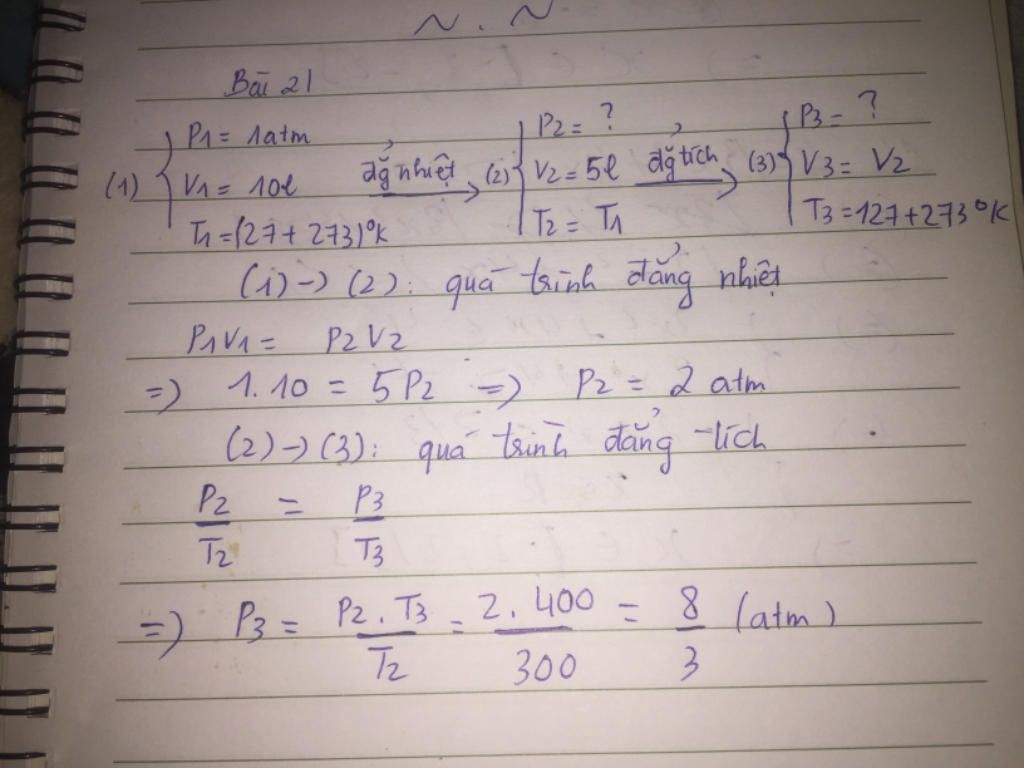 ~ . ~
Bài 21
(1) { P1 = 1atm
V1 = 10l
T1 = (27 + 273)°K
đẳg nhiệt →
(2) { P2 = ?
V2 = 5l
T2 = T1
đẳg tích →
(3) { P3 = ?
V3 = V2
T3 = 127 + 273°K
(1) → (2): quá trình đẳng nhiệt
P1V1 = P2V2
=> 1.10 = 5P2 => P2 = 2 atm
(2) → (3): quá trình đẳng tích
P2/T2 = P3/T3
=> P3 = P2.T3/T2 = 2.400/300 = 8/3 (atm)